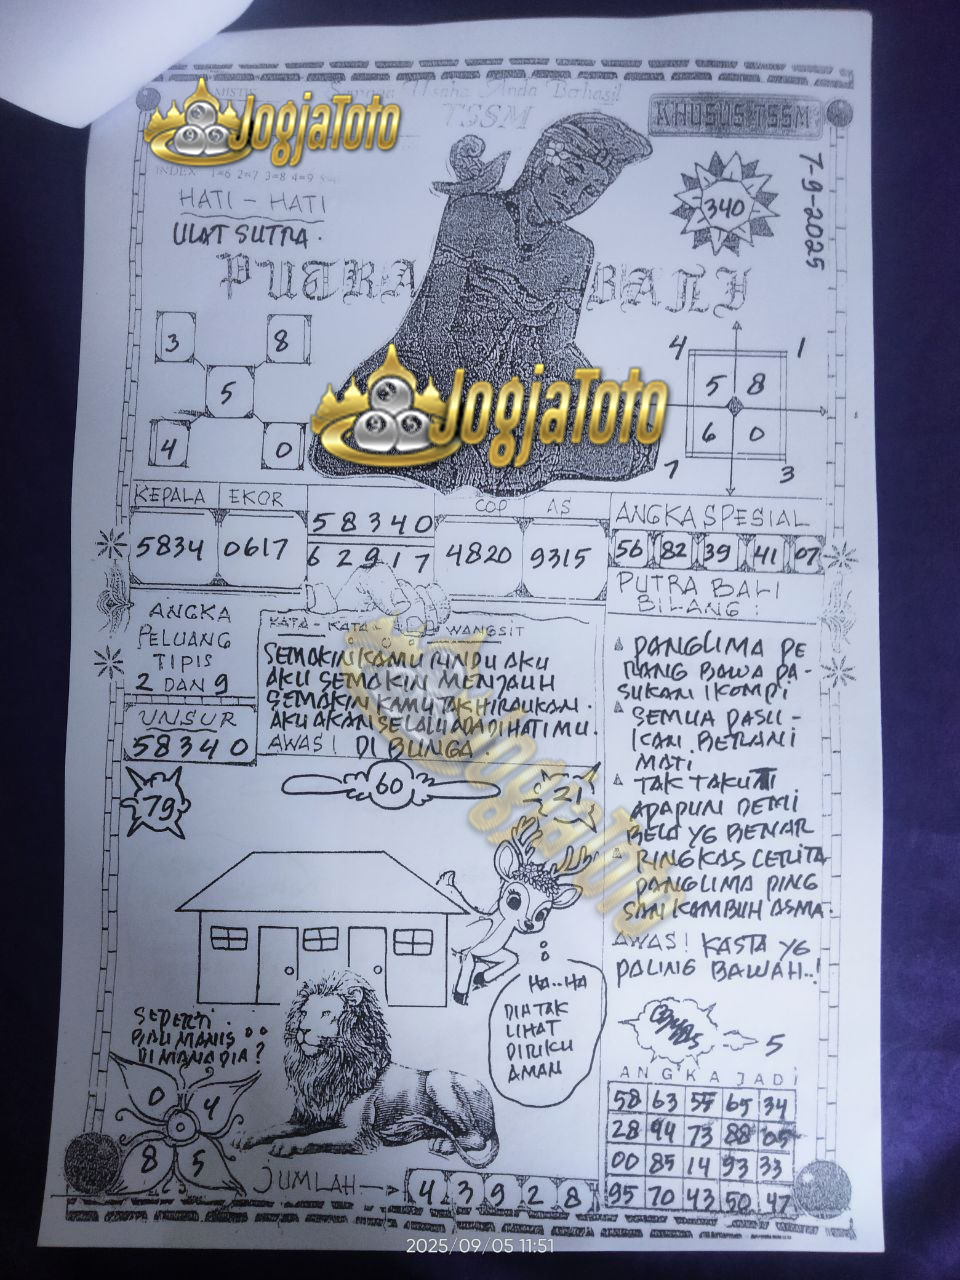 Sarana Usaha Anda Berhasil
TSSM
KHUSUS TSSM
JogjaToto
INDEX 1=6 2=7 3=8 4=9
HATI - HATI
ULAT SUTRA.
340
7-9-2025
PUTRA BALI
3 8
5
4 0
4 1
5 8
6 0
7 3
JogjaToto
KEPALA EKOR
5834 0617
58340
62917
COP AS
4820 9315
ANGKA SPESIAL
56 82 39 41 07
ANGKA
PELUANG
TIPIS
2 DAN 9
UNSUR
58340
KATA - KATA WANGSIT
SEMAKIN KAMU RINDU AKU
AKU SEMAKIN MENJAUH
SEMAKIN KAMU TAK HIRAUKAN.
AKU AKAN SELALU ADA DI HATI MU.
AWAS! DI BUNGA.
PUTRA BALI
BILANG:
PANGLIMA PE
RANG BAWA PA-
SUKAN 1 KOMPI
SEMUA PASU-
KAN BERANI
MATI
TAK TAKUT
APAPUN DEMI
BELA YG BENAR
RINGKAS CERITA
PANGLIMA PING
SAN KAMBUH ASMA.
AWAS! KASTA YG
PALING BAWAH..!
79
60
21
JogjaToto
HA..HA
DIA TAK
LIHAT
DIRIKU
AMAN
SEPERTI
MANIS
DI MANA DIA?
0 4
8 5
5
ANGKA JADI
58 63 55 65 34
28 94 73 88 05
00 85 14 93 33
95 70 43 50 47
JUMLAH
4 3 9 2 8
2025/09/05 11:51